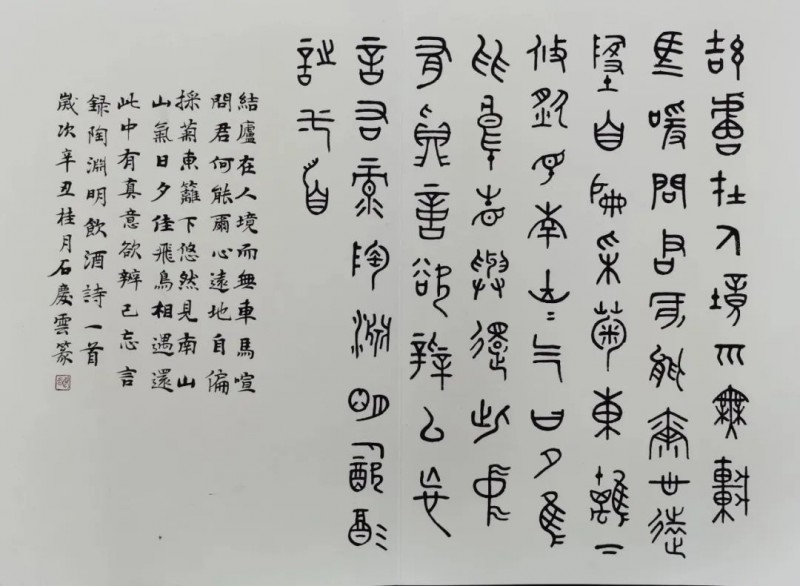 結廬在人境而無車
馬喧問君何能爾心遠
地自偏采菊東籬下
悠然見南山〻氣日夕佳
飛鳥相與還此中
有真意欲辨已忘
言右录陶淵明飲酒
詩
結廬在人境而無車馬喧
問君何能爾心遠地自偏
採菊東籬下悠然見南山
山氣日夕佳飛鳥相遇還
此中有真意欲辨已忘言
錄陶淵明飲酒詩一首
歲次辛丑桂月石慶雲篆